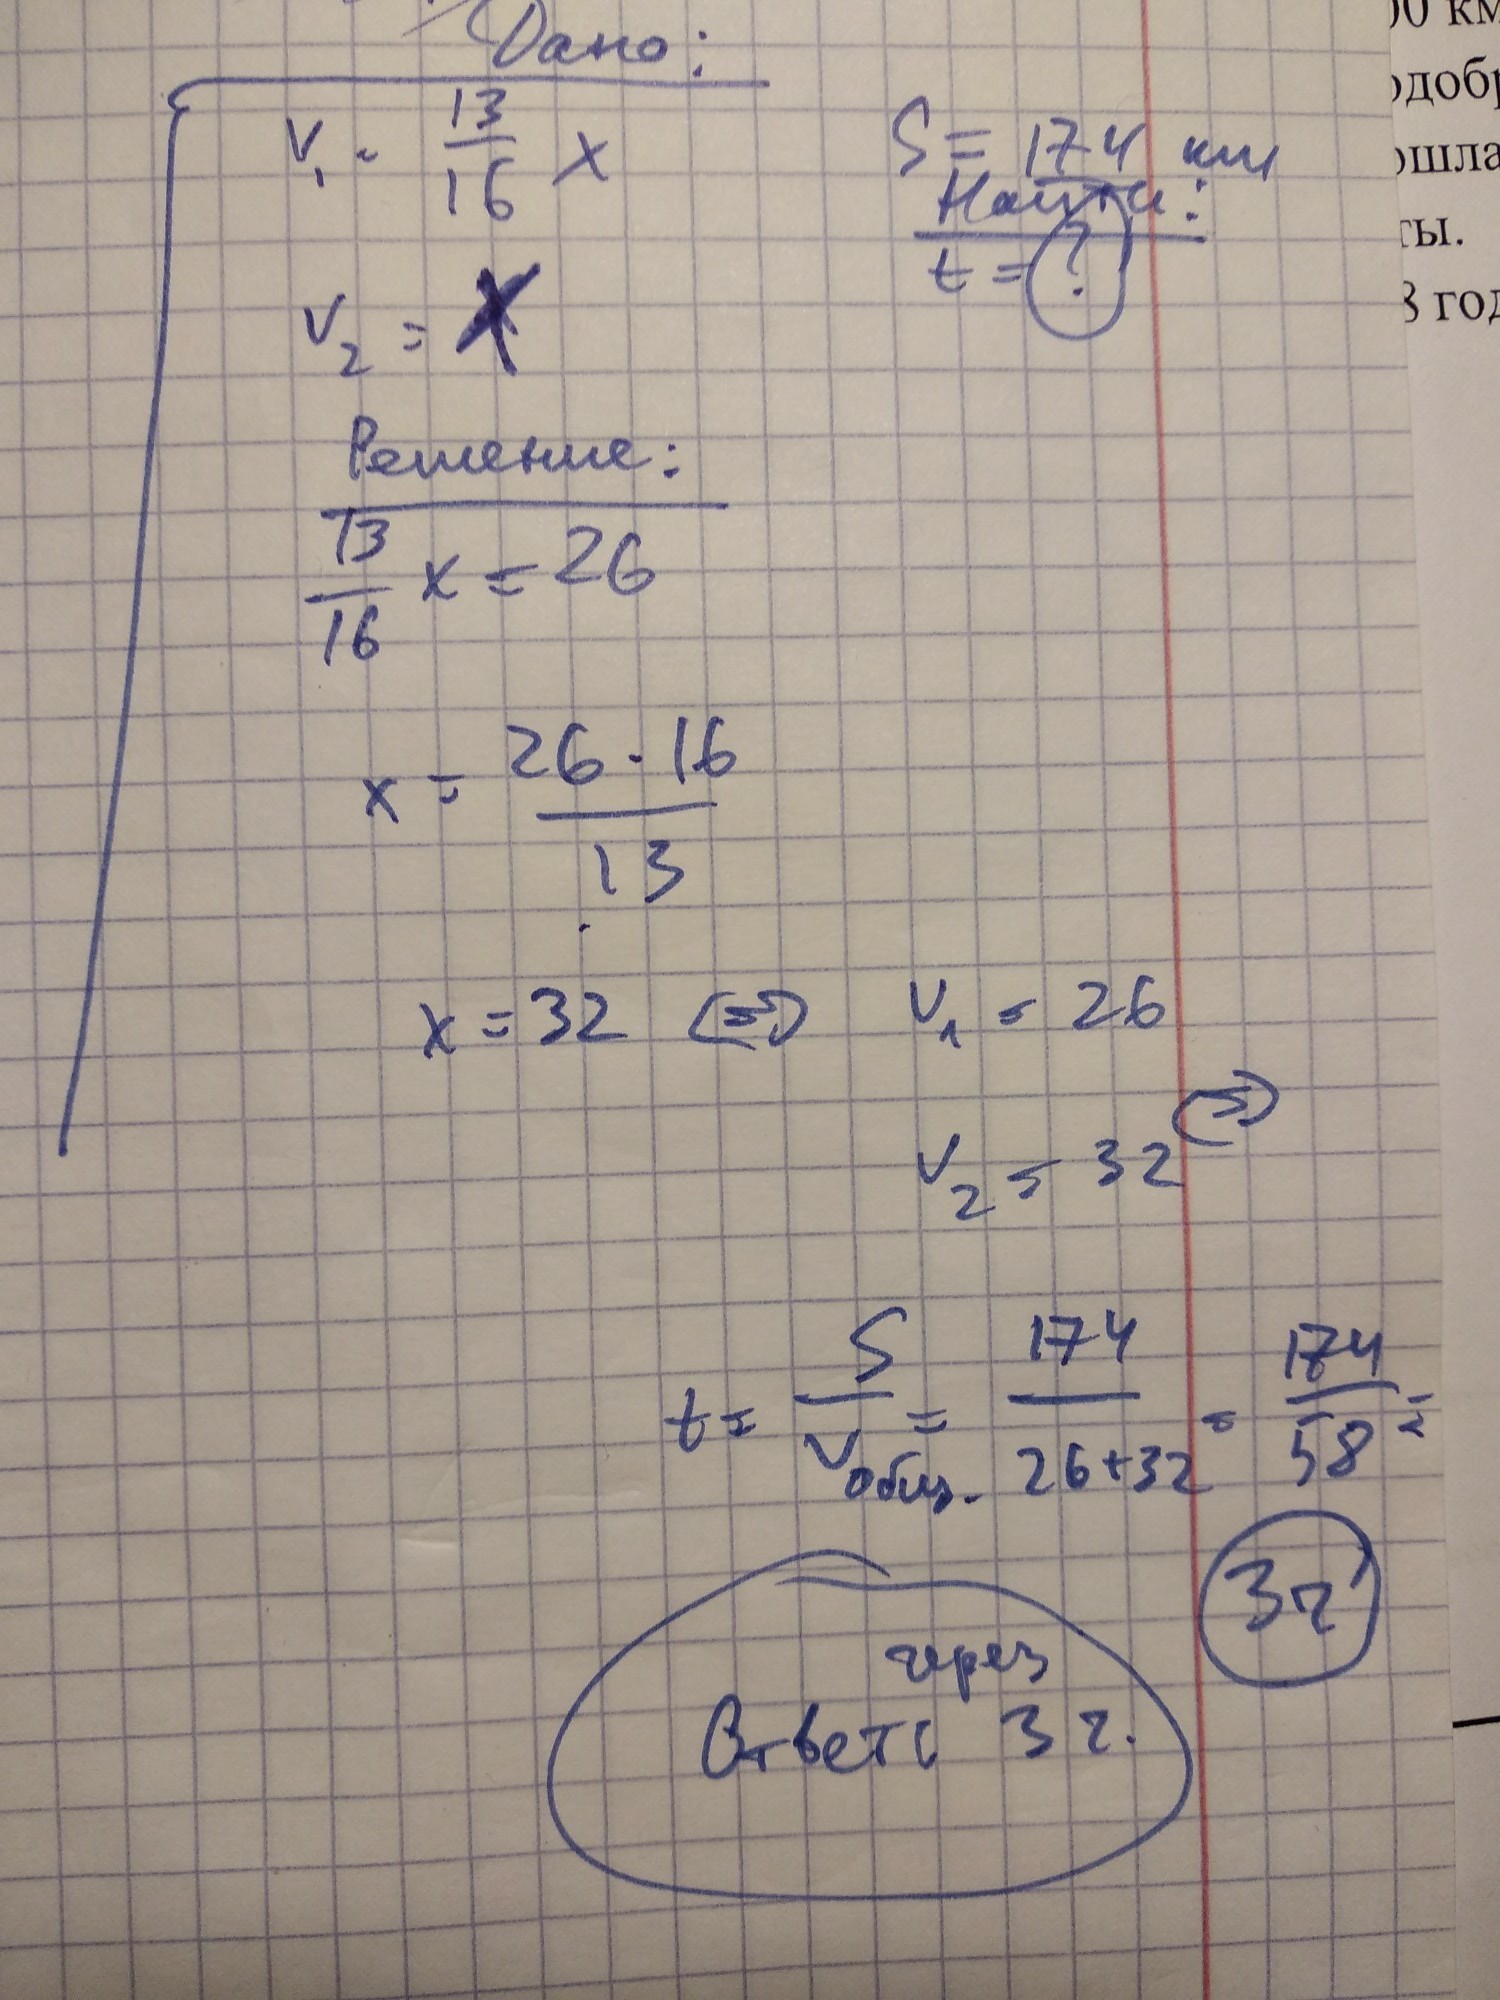 Дано:
V₁ = 13/16 x
S = 174 км
Найти:
t = ?
V₂ = x
Решение:
13/16 x = 26
x = 26 · 16 / 13
x = 32 (=>) V₁ = 26
V₂ = 32 (=>)
t = S / Vобщ. = 174 / 26+32 = 174 / 58 =
3ч
через
Ответ: 3 ч.
00 км
одобр
ошла
ты.
8 год